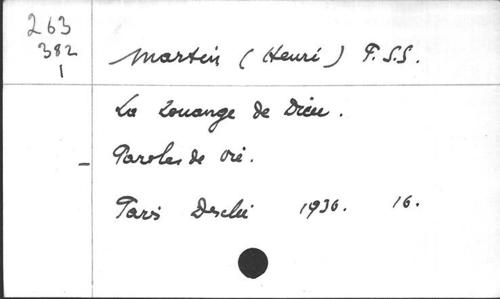 263
382
1
Martin (Henri) P.S.S.
La Louange de Dieu.
- Paroles de vie.
Paris Desclée 1936. 16.